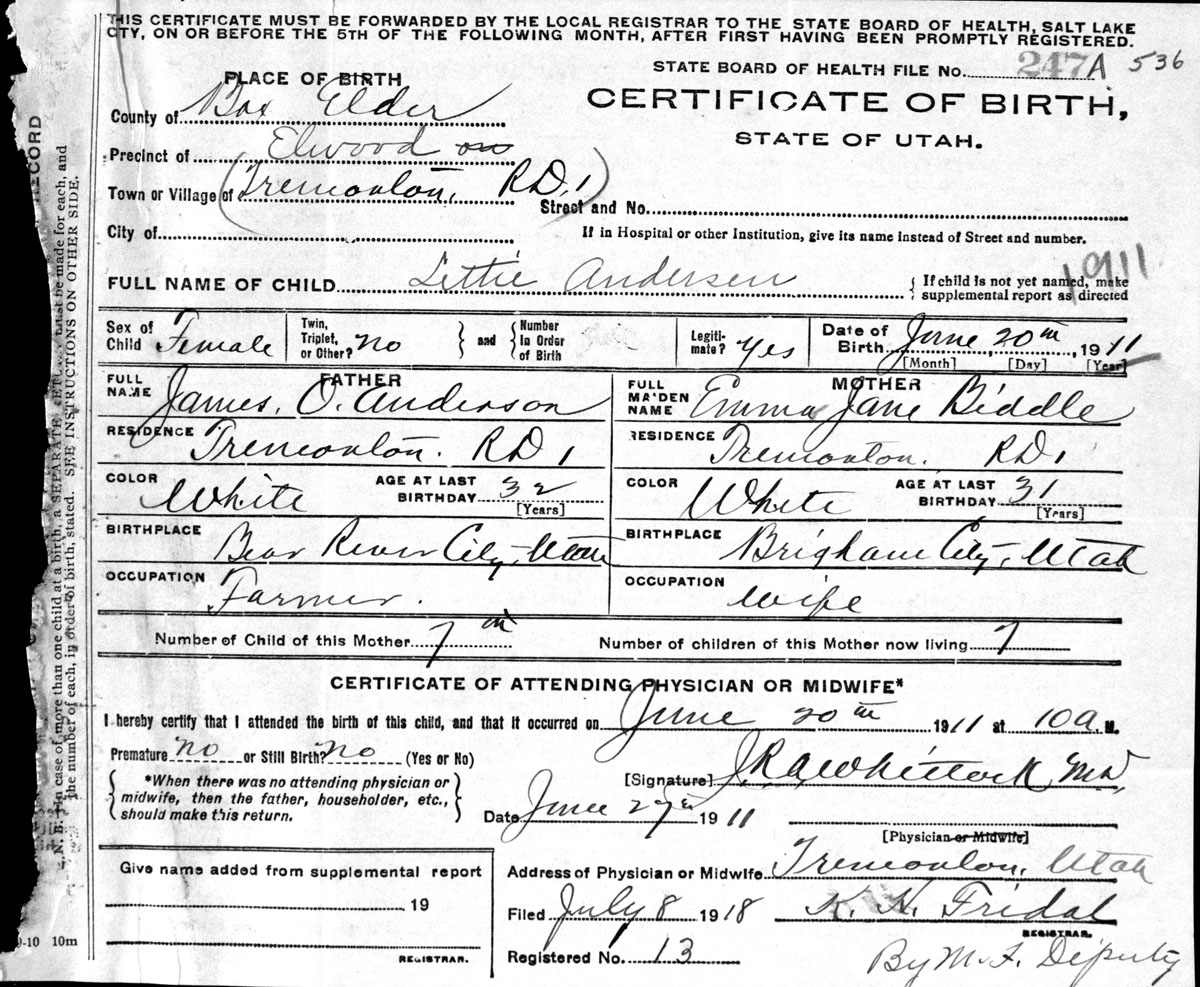 THIS CERTIFICATE MUST BE FORWARDED BY THE LOCAL REGISTRAR TO THE STATE BOARD OF HEALTH, SALT LAKE
CTY, ON OR BEFORE THE 5TH OF THE FOLLOWING MONTH, AFTER FIRST HAVING BEEN PROMPTLY REGISTERED.
STATE BOARD OF HEALTH FILE No. 247A 536
PLACE OF BIRTH
CERTIFICATE OF BIRTH,
STATE OF UTAH.
County of Box Elder
Precinct of Elwood on
Town or Village of (Tremonton, RD, 1)
Street and No.
City of
If in Hospital or other Institution, give its name instead of Street and number.
1911
FULL NAME OF CHILD Lettie Andersen
If child is not yet named, make
supplemental report as directed
Sex of Child Female
Twin, Triplet, or Other? No
and
Number In Order of Birth
Legiti-mate? Yes
Date of Birth June 20th, 1911
[Month] [Day] [Year]
FATHER
FULL NAME James. O. Anderson
MOTHER
FULL MA'DEN NAME Emma Jane Biddle
RESIDENCE Tremonton. RD 1
RESIDENCE Tremonton. RD 1
COLOR White
AGE AT LAST BIRTHDAY 32
[Years]
COLOR White
AGE AT LAST BIRTHDAY 31
[Years]
BIRTHPLACE Bear River City, Utah
BIRTHPLACE Brigham City, Utah
OCCUPATION Farmer.
OCCUPATION Wife
Number of Child of this Mother 7th
Number of children of this Mother now living 7
CERTIFICATE OF ATTENDING PHYSICIAN OR MIDWIFE*
I hereby certify that I attended the birth of this child, and that it occurred on June 20th 1911 at 10 a. M.
Premature no or Still Birth? no (Yes or No)
*When there was no attending physician or
midwife, then the father, householder, etc.,
should make this return.
[Signature]
MD
Date June 27th 1911
[Physician or Midwife]
Give name added from supplemental report
19
REGISTRAR.
Address of Physician or Midwife Tremonton, Utah
Filed July 8 1918 K. H. Fridal
REGISTRAR.
Registered No. 13
By M. F. Deputy
RECORD
N. B. In case of more than one child at a birth, a SEPARATE must be made for each, and
the number of each, in order of birth, stated. SEE INSTRUCTIONS ON OTHER SIDE.
9-10 10m